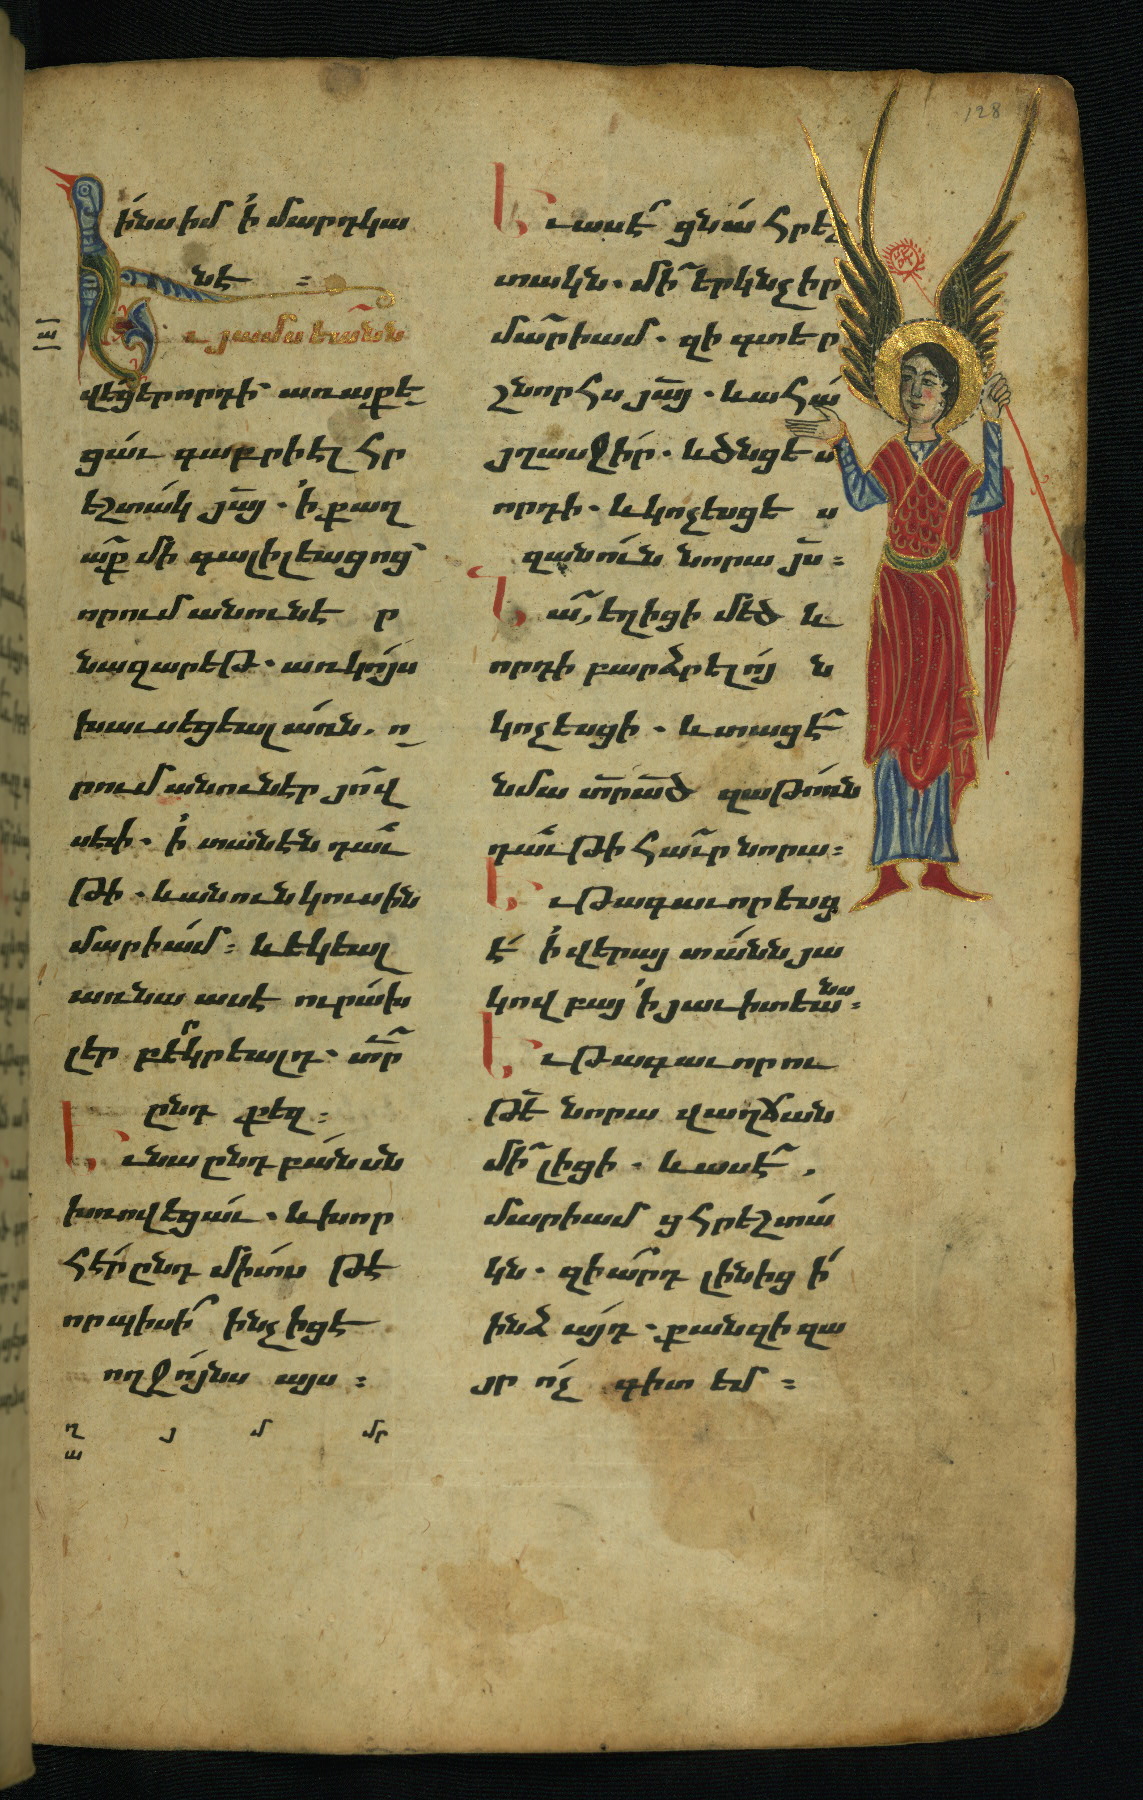 128
իՆսիմ ՛ի մարդկա
նէ :
Ե
ւ յամսեանն
վեցերորդի առաքե
ցաւ գաբրիէլ հր
եշտակ յայ · ՛ի քաղ
աք մի գալիլեացոց
որում անուն է ր
նազարեթ · առ կոյս
խաւսեցեալ առն · ո
րում անուն էր յով
սեփ · ՛ի տանէն դաւ
թի · և անուն կուսին
մարիամ : և եկեալ
առ նա ասէ ուրախ
լեր բերկրեալդ · տր
ընդ քեզ :
Եւ նա ընդ բանսն
խռովեցաւ · և խոր
հէր ընդ միտս թէ
որպիսի ինչ իցէ
ողջոյնս այս :
ղ յ մ մր
ա
Եւ ասէ ցնա հրեշ
տակն · մի երկնչիր
մարիամ · զի գտեր
շնորհս յայ · և ահա
յղասջիր · և ծնցես
որդի · և կոչեսցես
զանուն նորա յս :
Նա եղիցի մեծ և
որդի բարձրելոյ ն
կոչեսցի · և տացէ
նմա տր ած զաթոռն
դաւթի հաւր նորա :
Եւ թագաւորեսց
է ՛ի վերայ տանն յա
կովբայ ՛ի յաւիտեանս :
Եւ թագաւորու
թե նորա վաղճան
մի լիցի · և ասէ ,
մարիամ ց հրեշտա
կն · զիարդ լինիցի
ինձ այդ · քանզի զա
յր ոչ գիտեմ :